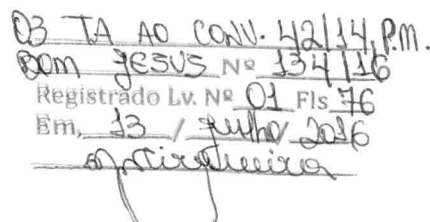 03 TA AO CONV. 42/14, P.M.
BOM JESUS Nº 134/16
Registrado Lv. Nº 01 Fls 76
Em, 13 / Julho / 2016